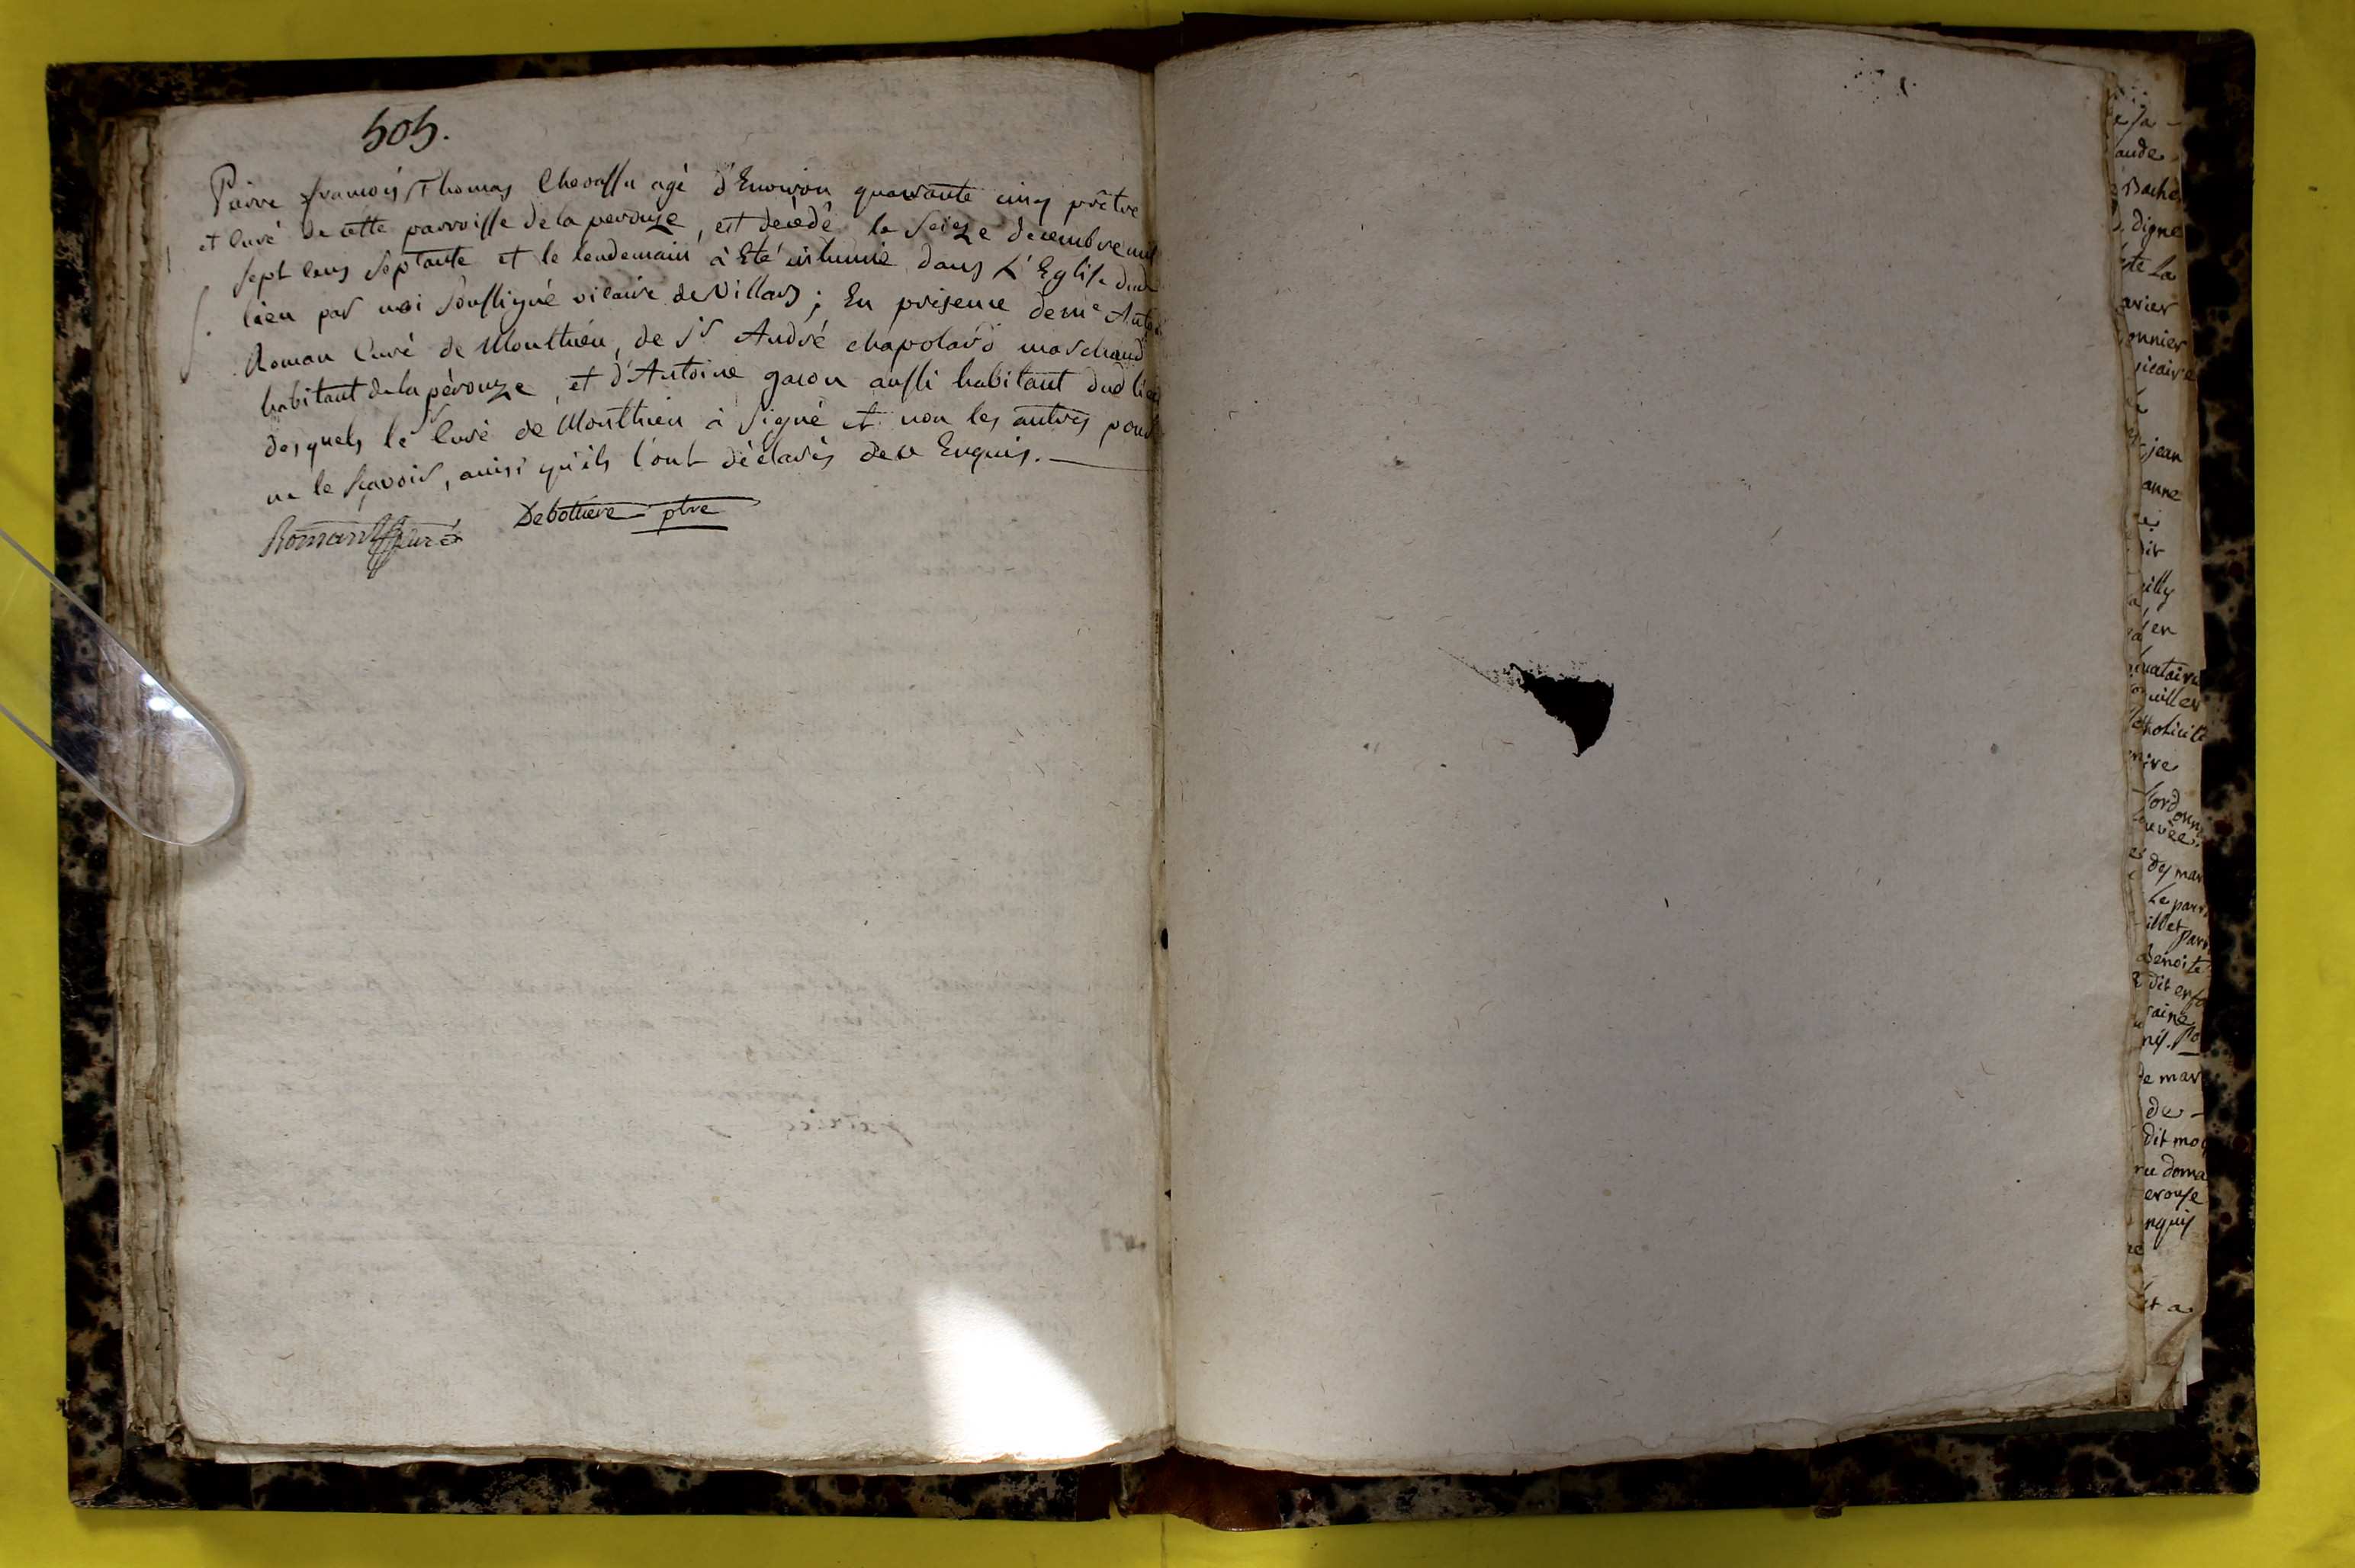 505.
Pierre françois Thomas Chevassu agé d'Environ quarante cinq prêtre
et Curé de cette parroisse de la perouze, est decedé le Seize decembre mil
sept Cens Septante et le lendemain à Eté inhumé dans L'Eglise dud
lieu par moi Soussigné vicaire de Villars; En présence de me Antoi
Roman Curé de Monthieu, de sr André chapolard marchand
habitant de la pérouze, et d'Antoine gacon aussi habitant dud lieu
desquels le Curé de Monthieu à signé et non les autres pour
ne le sçavoir, ainsi qu'ils l'ont déclarés de ce Enquis.
Romand Curé Debottiere ptre
aude
digne
arier
onnier
jean
anne
illy
en
nataire
ordonn
Le parr
Benoite
dit enfa
de mar
de
dit mo
erouse
nquis
et a